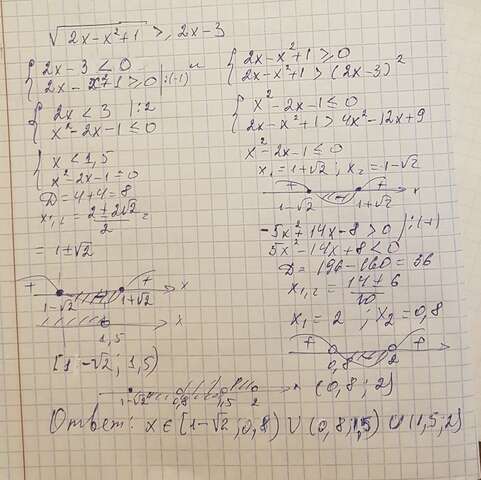 √2x-x²+1 ≥ 2x-3
{ 2x-3<0
2x-x²+1≥0 |:(-1)
{ 2x<3 |:2
x²-2x-1≤0
{ x<1,5
x²-2x-1=0
D=4+4=8
x₁,₂=(2±2√2)/2=
=1±√2
+ + x
1-√2 1+√2
x
1,5
[1-√2; 1,5)
и
{ 2x-x²+1≥0
2x-x²+1>(2x-3)²
{ x²-2x-1≤0
2x-x²+1>4x²-12x+9
x²-2x-1≤0
x₁=1+√2; x₂=1-√2
+ - + x
1-√2 1+√2
-5x²+14x-8>0 |:(-1)
5x²-14x+8<0
D=196-160=36
x₁,₂=(14±6)/10
x₁=2 ; x₂=0,8
+ - +
0,8 2
(0,8; 2)
1-√2 0,8 1,5 2 x
Ответ: x∈[1-√2; 0,8) ∪ (0,8; 1,5) ∪ (1,5; 2)